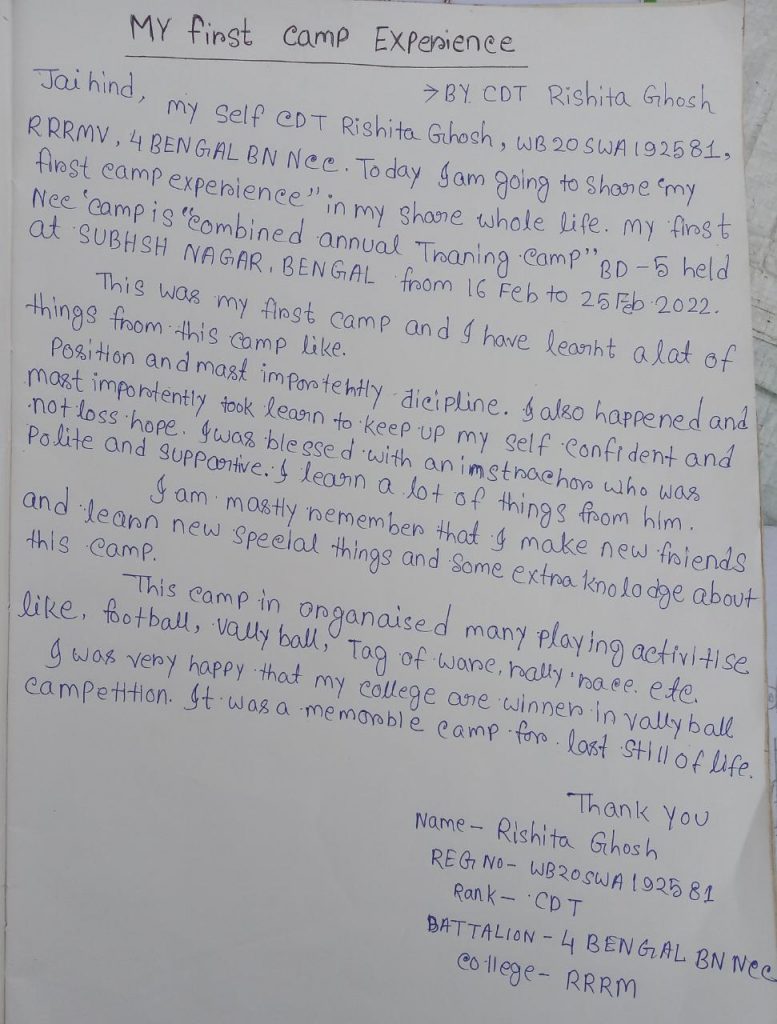 MY first camp Experience
→ BY CDT Rishita Ghosh
Jai hind, my self CDT Rishita Ghosh, WB20SWA192581,
RRRMV, 4 BENGAL BN Ncc. Today I am going to share "my
first camp experience" in my share whole life. my first
Ncc 'camp is "combined annual Traning camp" BD-5 held
at SUBHSH NAGAR, BENGAL from 16 Feb to 25 Feb 2022.
This was my first camp and I have learnt a lat of
things from this camp like.
Position and mast importently dicipline. I also happened and
mast importently took learn to keep up my self confident and
not loss hope. I was blessed with an imstrachor who was
Polite and supportive. I learn a lot of things from him.
I am mastly remember that I make new friends
and learn new special things and some extra knolodge about
this camp.
This camp in organaised many playing activitise
like, football, vally ball, Tag of ware, rally race. etc.
I was very happy that my college are winner in vally ball
campetition. It was a memorble camp for last still of life.
Thank you
Name - Rishita Ghosh
REG NO - WB20SWA192581
Rank - CDT
BATTALION - 4 BENGAL BN Ncc
college - RRRM